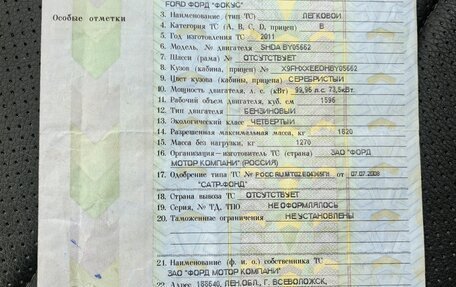 Особые отметки
FORD ФОРД "ФОКУС"
3. Наименование (тип ТС) ЛЕГКОВОЙ
4. Категория ТС (A, B, C, D, прицеп) B
5. Год изготовления ТС 2011
6. Модель, № двигателя SHDA BY05662
7. Шасси (рама) № ОТСУТСТВУЕТ
8. Кузов (кабина, прицеп) № X9FHXXEEDHBY05662
9. Цвет кузова (кабины, прицепа) СЕРЕБРИСТЫЙ
10. Мощность двигателя, л. с. (кВт) 99,96 л.с. 73,5кВт
11. Рабочий объем двигателя, куб. см 1596
12. Тип двигателя БЕНЗИНОВЫЙ
13. Экологический класс ЧЕТВЕРТЫЙ
14. Разрешенная максимальная масса, кг 1820
15. Масса без нагрузки, кг 1270
16. Организация—изготовитель ТС (страна) ЗАО "ФОРД
МОТОР КОМПАНИ" (РОССИЯ)
17. Одобрение типа ТС № РОСС от 07.07.2008
"САТР-ФОНД"
18. Страна вывоза ТС ОТСУТСТВУЕТ
19. Серия, № ТД, ТПО НЕ ОФОРМЛЯЛОСЬ
20. Таможенные ограничения НЕ УСТАНОВЛЕНЫ
21. Наименование (ф. и. о.) собственника ТС
ЗАО "ФОРД МОТОР КОМПАНИ"
22. Адрес 188640, ЛЕН.ОБЛ., Г. ВСЕВОЛОЖСК,